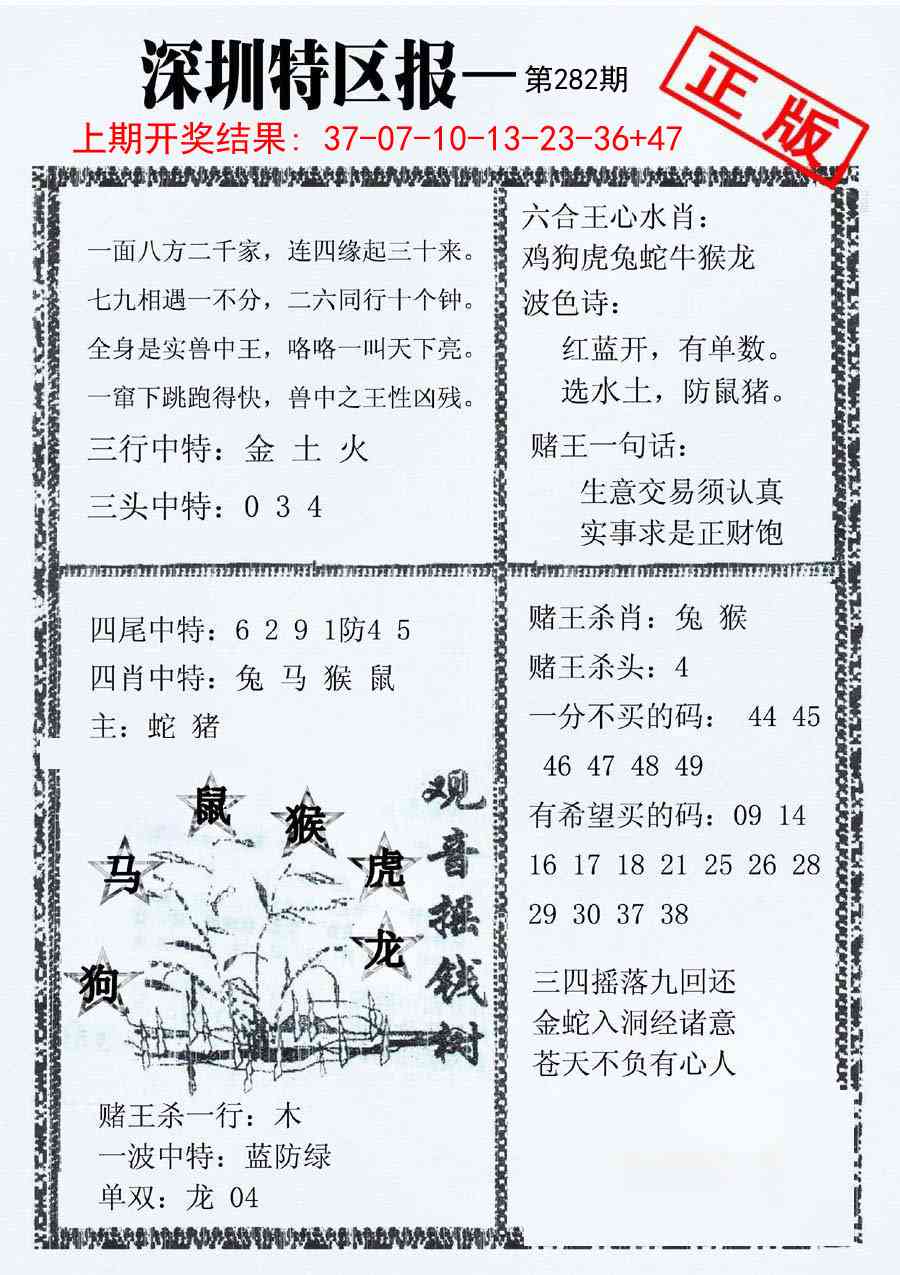 深圳特区报—第282期
正版
上期开奖结果：37-07-10-13-23-36+47
一面八方二千家，连四缘起三十来。
七九相遇一不分，二六同行十个钟。
全身是实兽中王，咯咯一叫天下亮。
一窜下跳跑得快，兽中之王性凶残。
三行中特：金 土 火
三头中特：0 3 4
六合王心水肖：
鸡狗虎兔蛇牛猴龙
波色诗：
红蓝开，有单数。
选水土，防鼠猪。
赌王一句话：
生意交易须认真
实事求是正财饱
四尾中特：6 2 9 1防4 5
四肖中特：兔 马 猴 鼠
主：蛇 猪
鼠
猴
马
虎
龙
狗
观音摇钱树
赌王杀一行：木
一波中特：蓝防绿
单双：龙 04
赌王杀肖：兔 猴
赌王杀头：4
一分不买的码： 44 45
46 47 48 49
有希望买的码：09 14
16 17 18 21 25 26 28
29 30 37 38
三四摇落九回还
金蛇入洞经诸意
苍天不负有心人